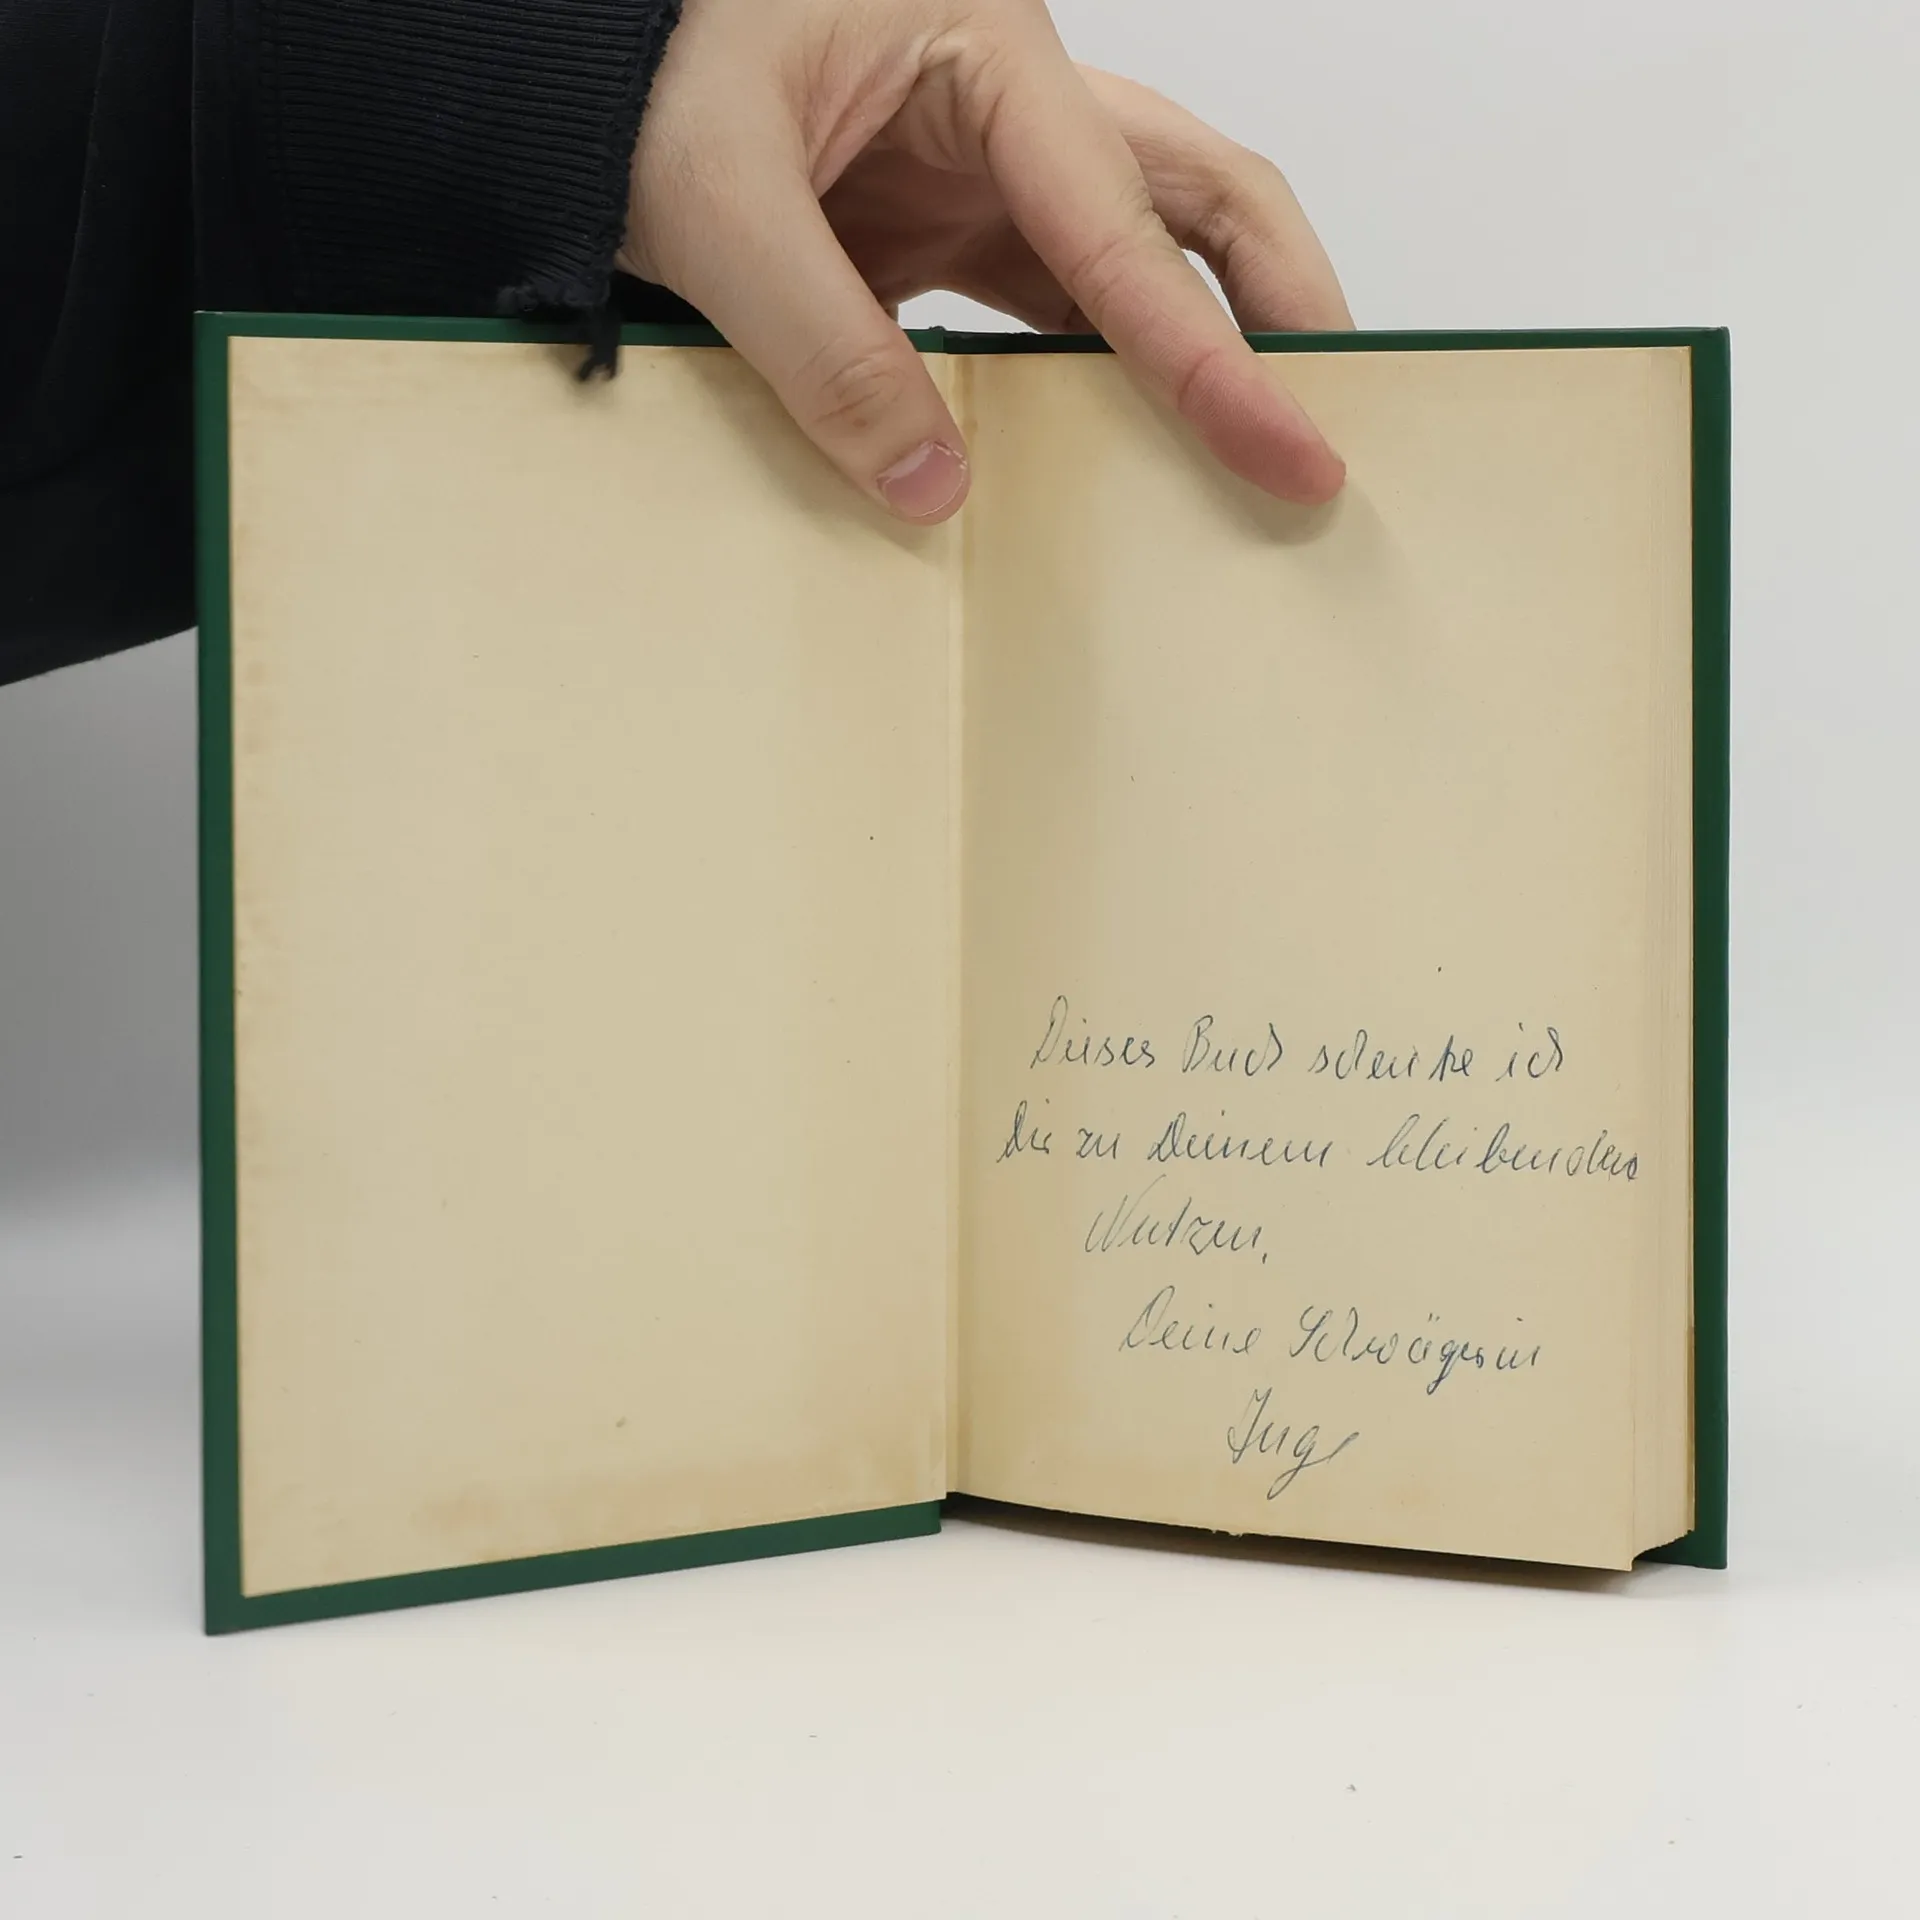 Dieses Buch schenke ich
Dir zu Deinem bleibenden
Nutzen.
Deine Schwägerin
Inge